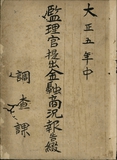 大正五年中
監理官提出金融商況報告綴
調査課